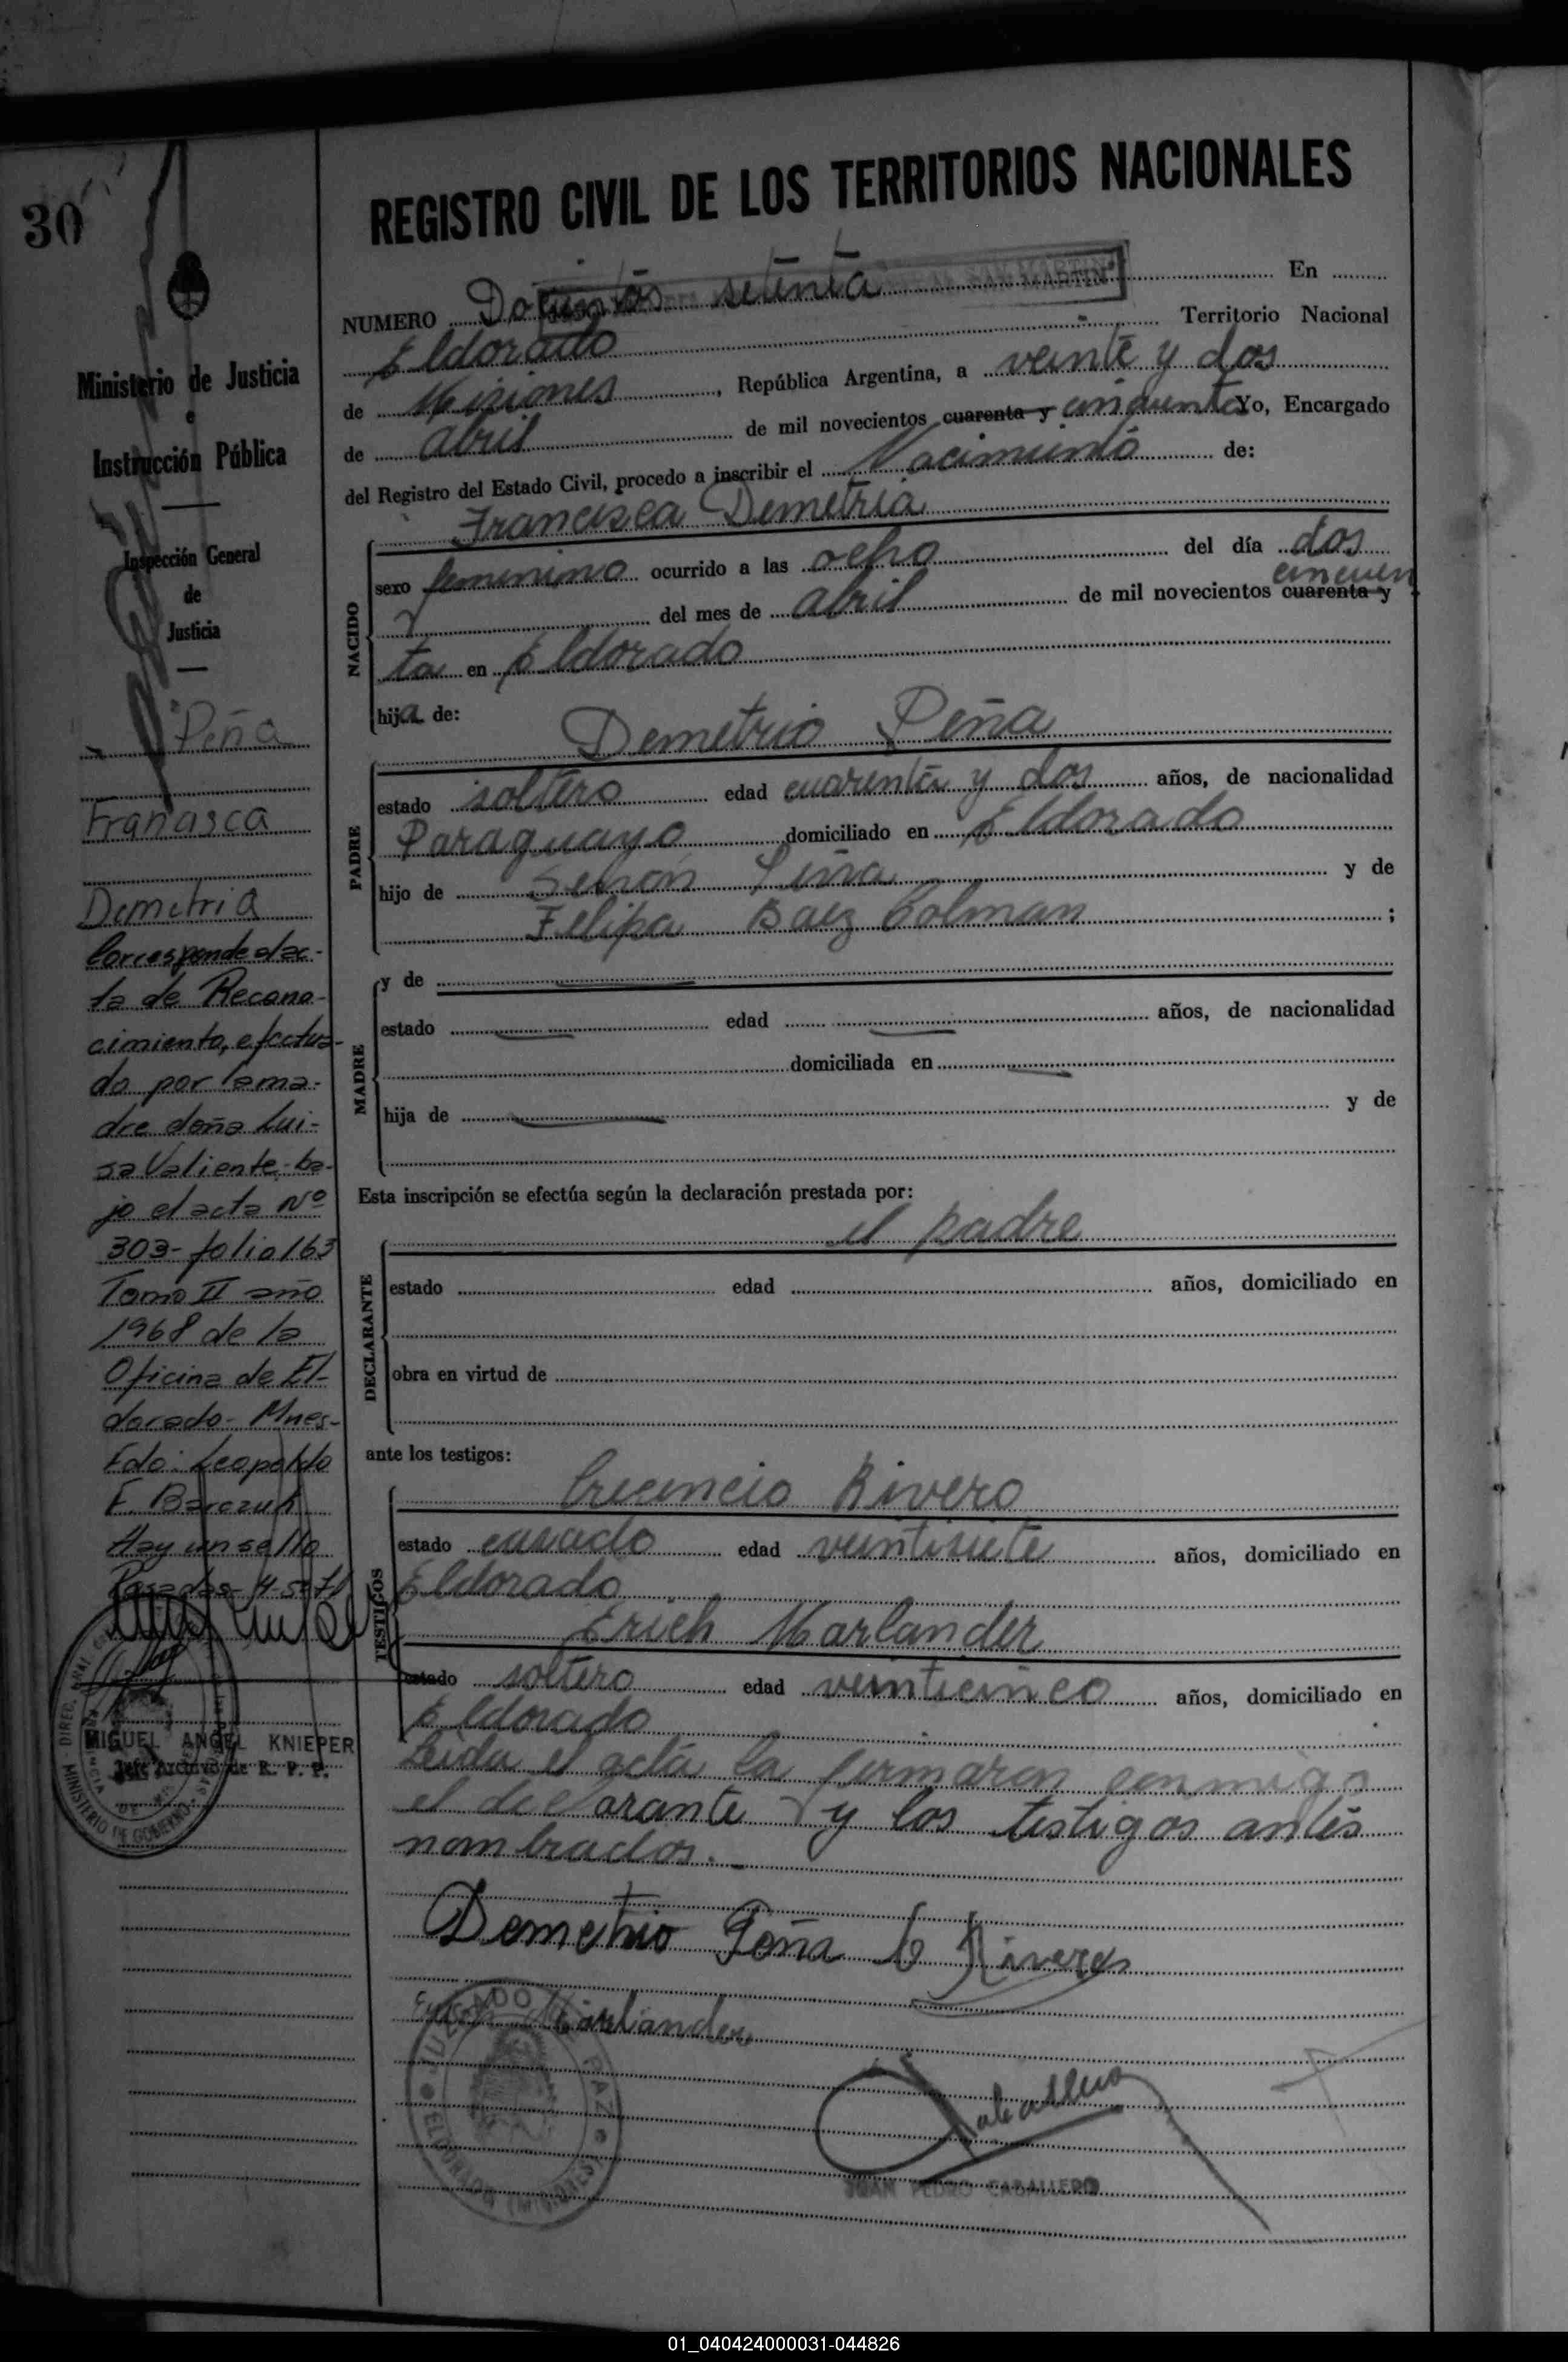 30
Ministerio de Justicia
e
Instrucción Pública
Inspección General
de
Justicia
Peña
Francisca
Demetria
Corresponde al ac-
ta de Recono-
cimiento, efectua-
do por la ma-
dre doña Lui-
sa Valiente-ba-
jo el acta Nº
303- folio 163
Tomo II año
1968 de la
Oficina de El-
dorado- Mnes-
Fdo: Leopoldo
Hay un sello
MIGUEL ANGEL KNIEPER
Jefe Archivo de R. P. P.
REGISTRO CIVIL DE LOS TERRITORIOS NACIONALES
NUMERO Docientos setenta En
Eldorado Territorio Nacional
de Misiones, República Argentina, a veinte y dos
de abril de mil novecientos cuarenta y cincuenta Yo, Encargado
del Registro del Estado Civil, procedo a inscribir el Nacimiento de:
Francisca Demetria
NACIDO
sexo femenino ocurrido a las ocho del día dos
del mes de abril de mil novecientos cuarenta y cincuen
ta en Eldorado
hija de:
Demetrio Peña
PADRE
estado soltero edad cuarenta y dos años, de nacionalidad
Paraguayo domiciliado en Eldorado
hijo de Peña y de
Felipa Baez Colman ;
MADRE
y de
estado edad años, de nacionalidad
domiciliada en
hija de y de
Esta inscripción se efectúa según la declaración prestada por:
el padre
DECLARANTE
estado edad años, domiciliado en
obra en virtud de
ante los testigos:
Crecencio Rivero
TESTIGOS
estado casado edad veintisiete años, domiciliado en
Eldorado
Erich Marlander
estado soltero edad veinticinco años, domiciliado en
Eldorado
Leida el acta la firmaron conmigo
el declarante y los testigos antes
nombrados.
Demetrio Peña C Riveros
Marlander
JUZGADO PAZ
ELDORADO (MISIONES)
Caballero
JUAN PEDRO CABALLERO
01_040424000031-044826